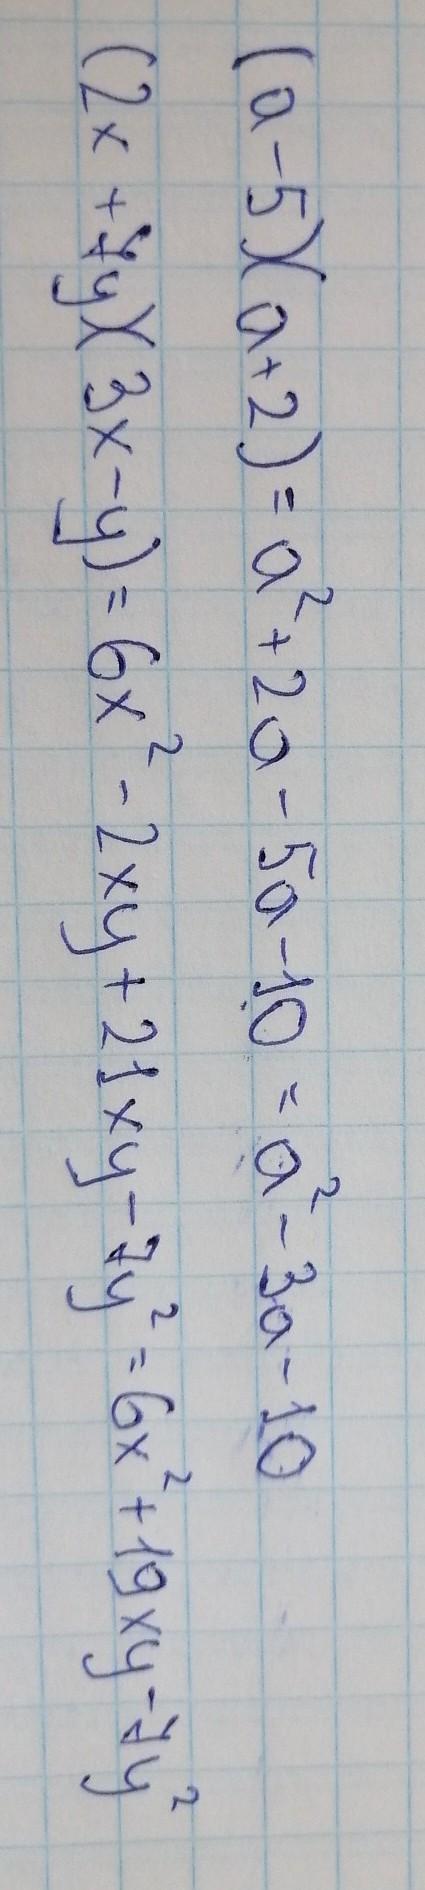 (a-5)(a+2)=a²+2a-5a-10=a²-3a-10
(2x+7y)(3x-y)=6x²-2xy+21xy-7y²=6x²+19xy-7y²